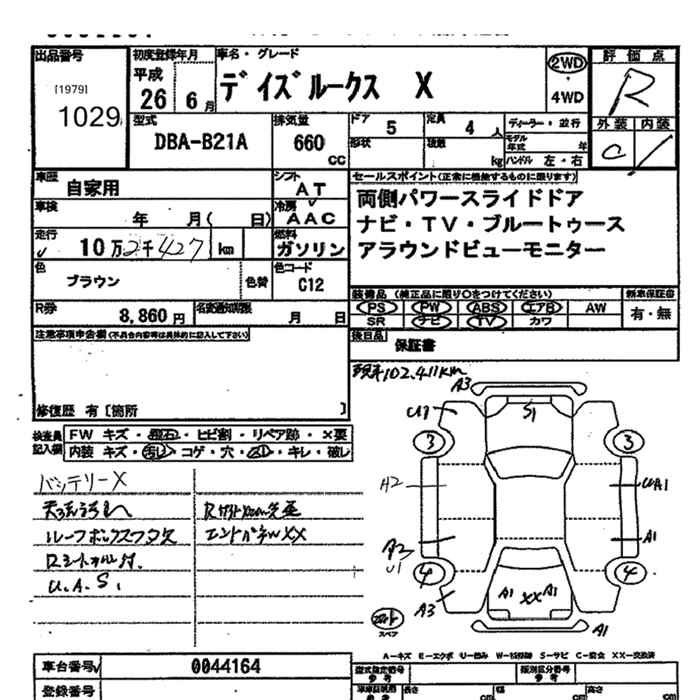 出品番号
[1979]
1029
初度登録年月
平成
26 6月
車名・グレード
デイズルークス X
2WD
・
4WD
評価点
R
型式
DBA-B21A
排気量
660
CC
ドア
5
定員
4 人
形状
積数
kg
ディーラー・並行
モデル年式 年
ハンドル 左・右
外装 内装
C
車歴
自家用
シフト
AT
車検
年 月( 日)
冷房
AAC
走行
10万2千427 km
燃料
ガソリン
色
ブラウン
色替
色コード
C12
セールスポイント(正常に機能するものに限ります)
両側パワースライドドア
ナビ・TV・ブルートゥース
アラウンドビューモニター
R券
8,860円
名変通知期限
月 日
装備品 (純正品に限り○をつけてください)
新車保証書
PS PW ABS エアB AW
SR ナビ TV カワ
有・無
後日品
保証書
注意事項申告欄(不具合内容等は具体的に記入して下さい)
修復歴 有[箇所 ]
現車102,411km
検査員
記入欄
FW キズ・飛石・ヒビ割・リペア跡・×要
内装 キズ・汚レ・コゲ・穴・スレ・キレ・破レ
バッテリーX
ルーフボックスフタ欠
U.A.S.
A3
U1
S1
3
3
A2
UA1
A2
U1
A1
4
4
A3
A1 XX A1
A1
スペア
A-キズ E-エクボ U-凹み W-補修跡 S-サビ C-腐食 XX-交換済
車台番号
0044164
登録番号
型式指定番号
参考
類別区分番号
参考
長さ
cm
幅
cm
高さ
cm